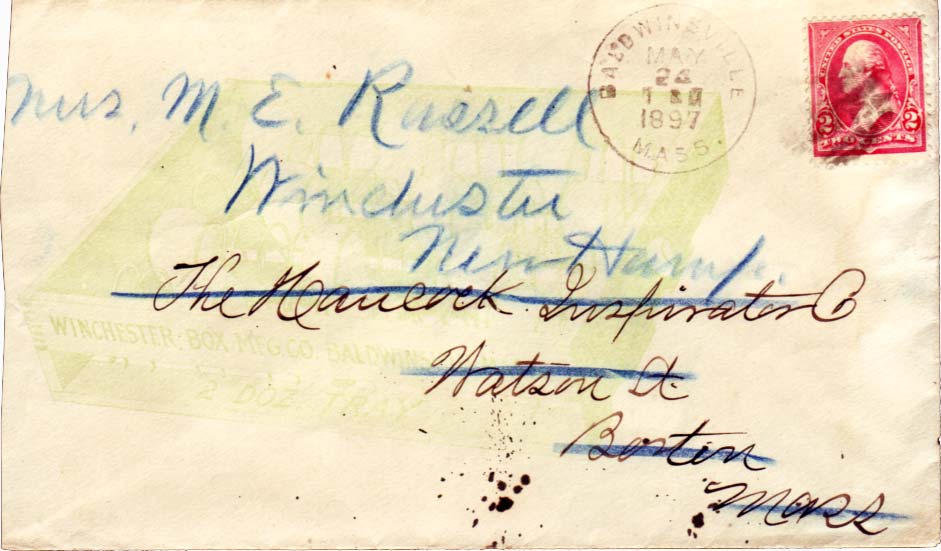 BALDWINSVILLE
MAY
24
1897
MASS.
UNITED STATES POSTAGE
2 2
TWO CENTS
Mrs. M. E. Russell
Winchester
New Hamp.
The Hancock Inspirator Co
Watson St.
Boston
Mass
WINCHESTER BOX MFG. CO. BALDWINS
2 DOZ TRAY